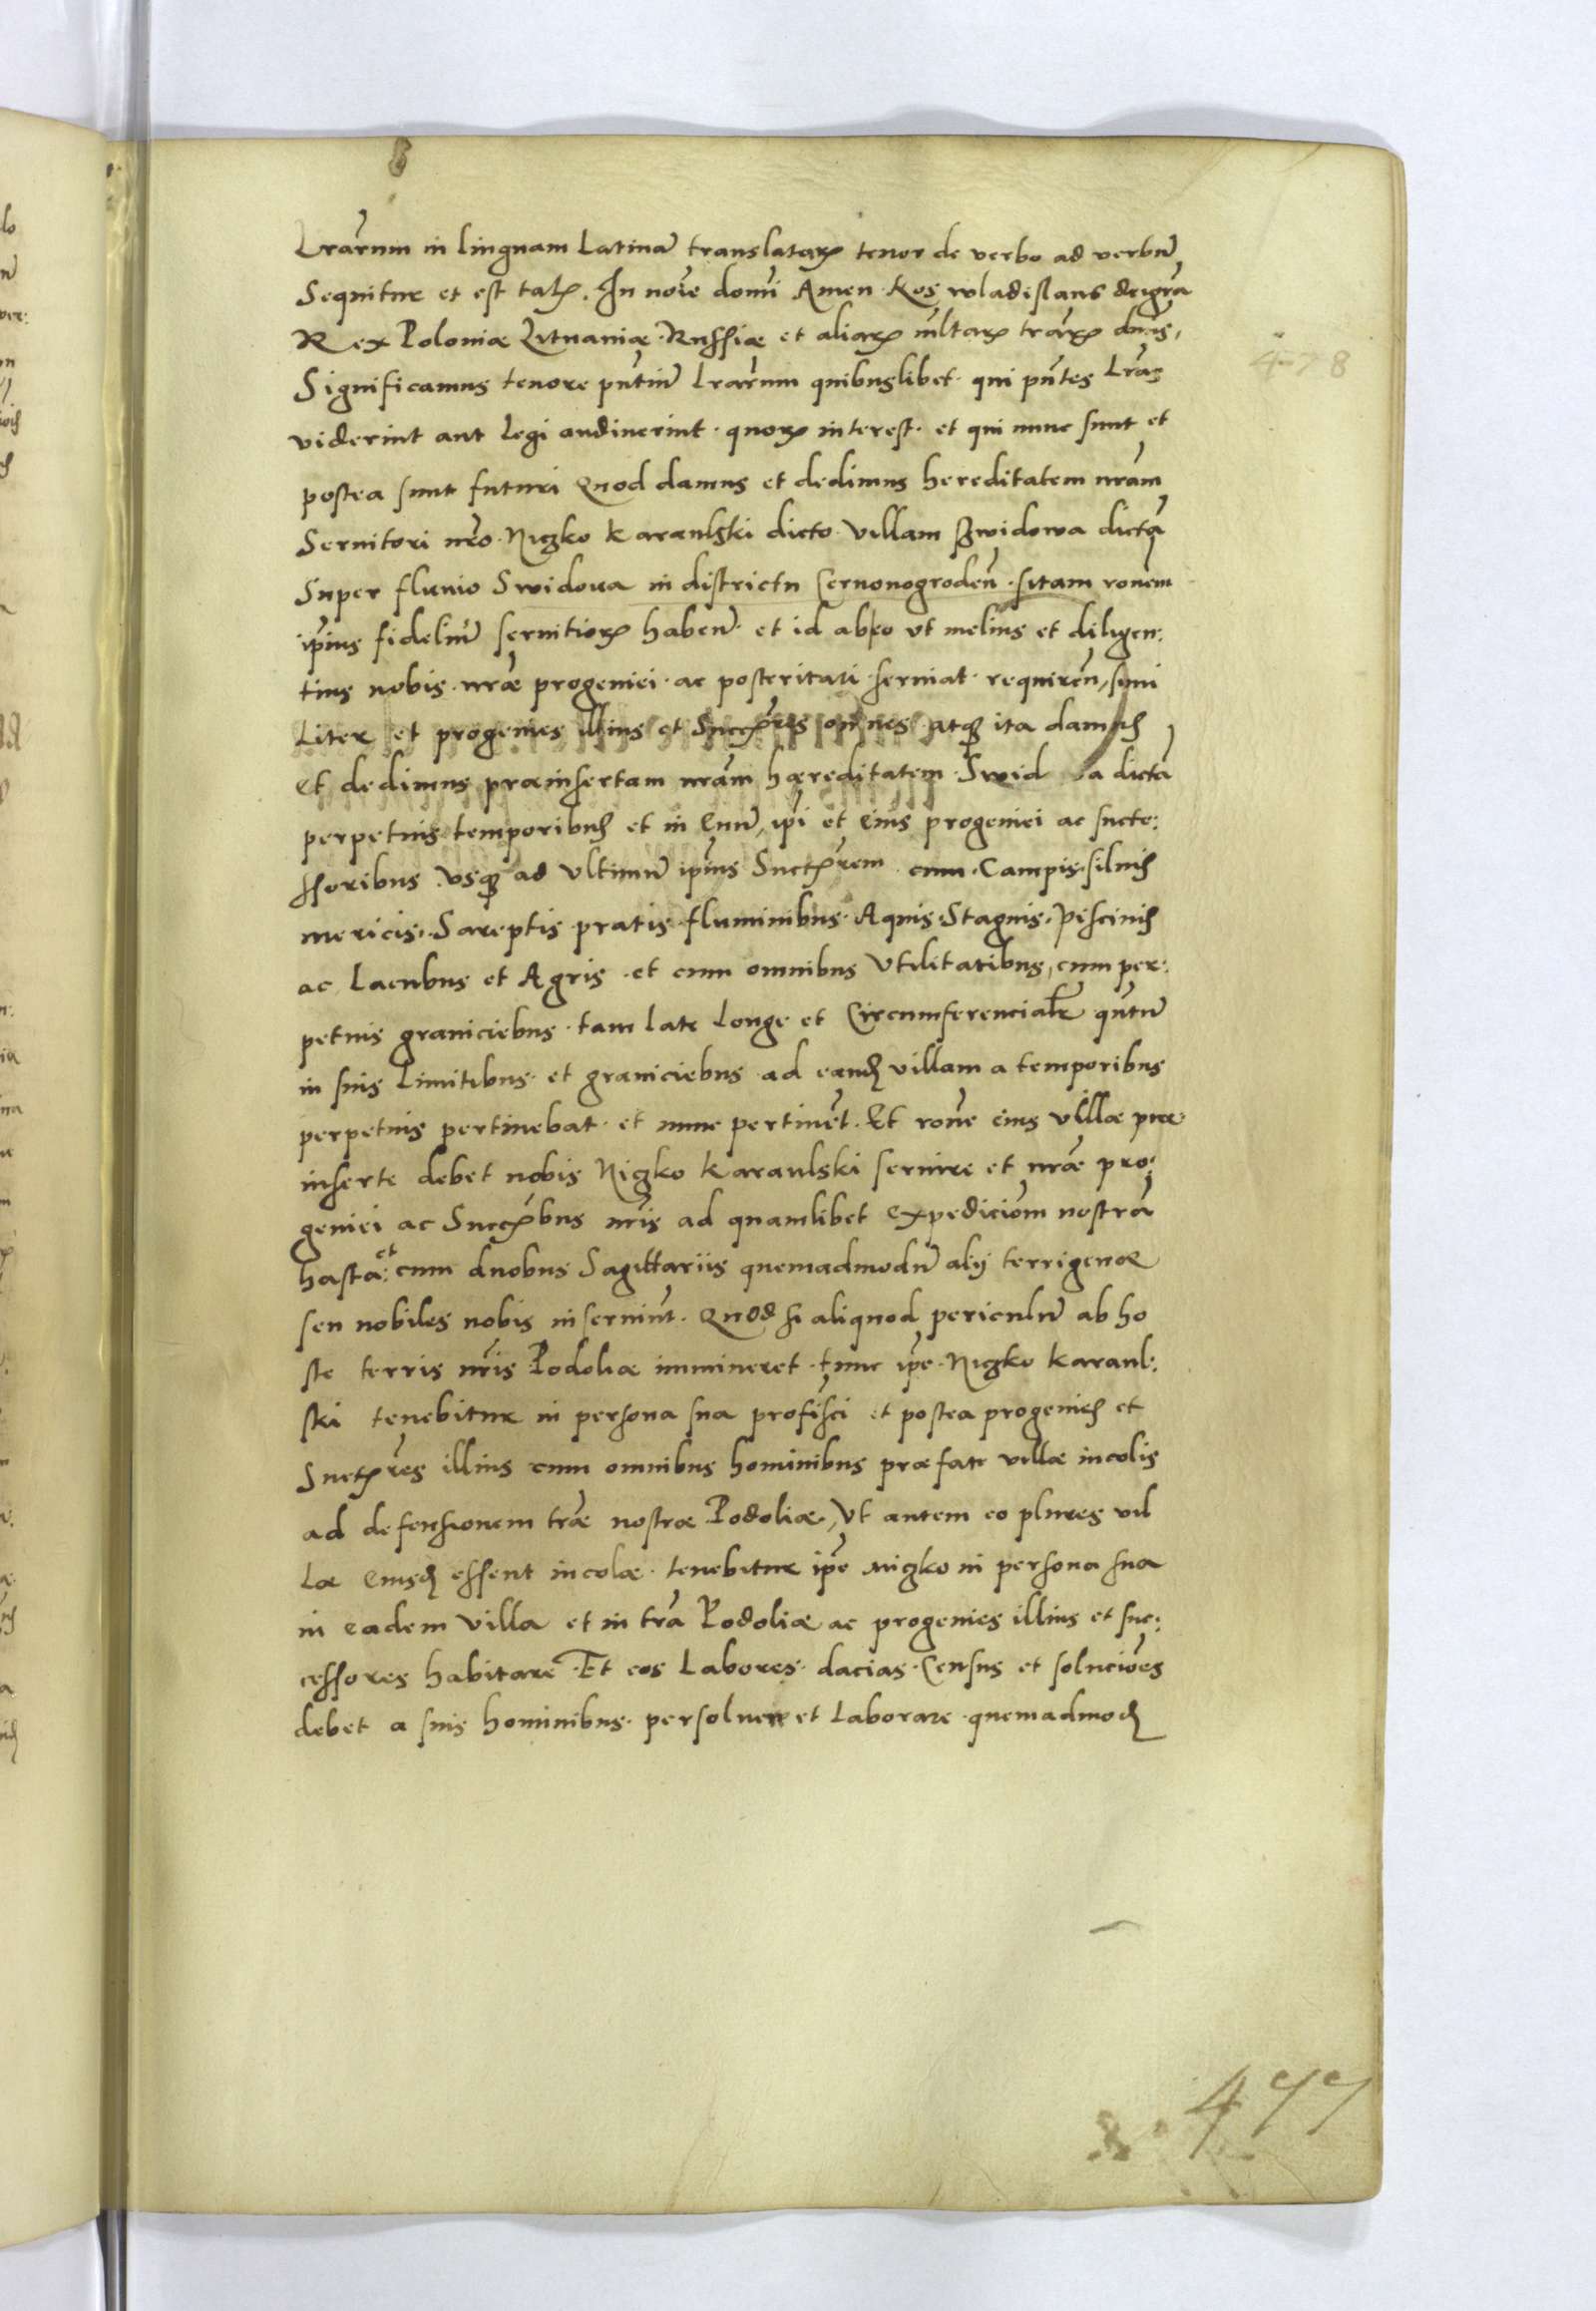 Lrarum in linguam Latinā translatarꝝ tenor de verbo ad verbū
Sequitur et est talꝭ. In noīe domi Amen. Nos wladislaus dei gra
Rex Poloniæ Lituaniæ. Russiæ et aliarꝝ mltarꝝ trarꝝ dns,
Significamus tenore pntiū Lrarum quibuslibet. qui pntes Lras
viderint aut legi audiuerint. quorꝝ interest. et qui nunc sunt et
postea sunt futuri Quod damus et dedimus hereditatem nram
Seruitori nro. Niczko Karaulski dicto. villam Swidowa dictā
Super fluuio Swidoua in districtu Cernonogroden. sitam ronem
ipius fideliū seruitiorꝝ haben. et id ab eo vt melius et diligen:
tius nobis. nræ progeniei. ac posteritati. seruiat. requiren, simi
liter et progenies illius et Succores omnes. atqȝ ita damus
et dedimus præinsertam nram hæreditatem. Swid va dictā
perpetuis temporibus et in euū, ipi et eius progeniei ac succe:
ssoribus. vsqȝ ad vltimū ipius Succorem. cum. Campis. siluis
mericis. Sareptis. pratis. fluminibus. Aquis. Stagnis. Piscinis
ac Lacubus et Agris. et cum omnibus vtilitatibus, cum per:
petuis graniciebus. tam late longe et circumferencialr qntū
in suis limitibus. et graniciebus. ad eandꝫ villam a temporibus
perpetuis pertinebat. et nunc pertinet. Et rone eius villæ præ:
inserte debet nobis Niczko Karaulski seruire et nræ pro:
geniei ac Succbus nris ad quamlibet expedicioem nostrā
hastā: et cum duobus Sagittariis quemadmodū alij terrigenæ
seu nobiles nobis inseruiunt. Quod si aliquod periculū ab ho
ste terris nris Podoliæ immineret. tunc ipe. Niczko Karaul:
ski tenebitur in persona sua profisci et postea progenies et
Succores illius cum omnibus hominibus præfate villæ incolis
ad defensionem træ nostræ Podoliæ, Vt autem eo plures vil
læ eiusdꝫ essent incolæ. tenebitur ipe niczko in persona sua
in eadem villa et in tra Podoliæ ac progenies illius et suc:
cessores habitare. Et eos labores. dacias. census et soluciões
debet a suis hominibus. persoluere et laborare. quemadmodꝫ
478
477